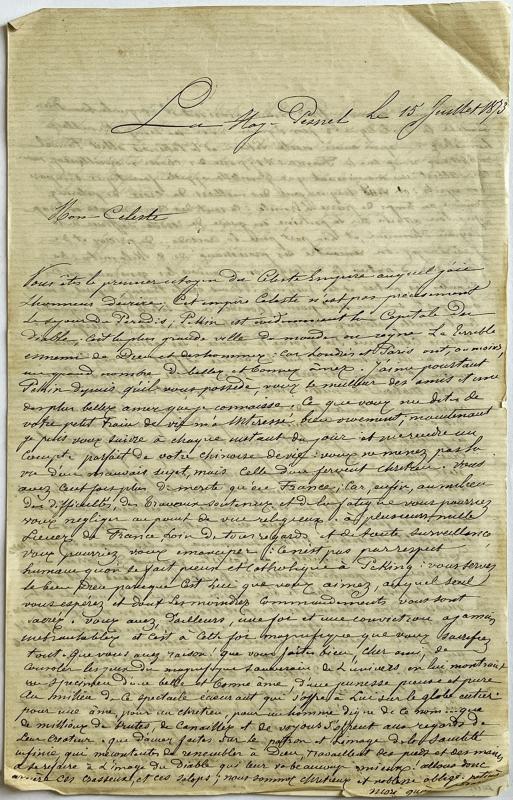 La Hay-Pesnel le 15 Juillet 1873
Mon Celeste
Vous êtes le premier citoyen du Céleste Empire auquel j'aie
L'honneur d'écrire. Cet empire Céleste n'est pas précisément
le séjour de Pékin est ordinairement la Capitale du
diable, c'est la plus grande ville du monde où règne La terrible
ennemie de Dieu et des hommes : car Londres et Paris ont, au moins,
un grand nombre de belles et bonnes âmes. J'aime pourtant
Pékin depuis qu'il vous possède, vous le meilleur des amis et une
des plus belles âmes que je connaisse. Ce que vous me dites de
votre petit train de vie m'a intéressé bien vivement, maintenant
je puis vous suivre à chaque instant du jour et me rendre un
Compte parfait de votre chinoise de vie : vous ne menez pas la
vie du mauvais sujet, mais Celle d'un fervent chretien. Vous
avez Cent fois plus de mérite qu'en France, Car enfin, au milieu
des difficultés, des travaux soutenus et de la fatigue vous pourriez
vous négliger au point de vue religieux. à plusieurs mille
Lieues de France loin de tous regards et de toute surveillance
vous pourriez vous émanciper : Ce n'est pas par respect
humain qu'on se fait pieux et Catholique à Péking : vous servez
le bon Dieu parceque C'est lui que vous aimez, auquel seul
vous espérez et dont les moindres Commandements vous sont
sacrés. Vous avez, d'ailleurs, une foi et une conviction à jamais
inébranlables et C'est à Cette foi magnifique que vous sacrifiez
tout. Que vous avez raison, que vous faites bien, cher ami, de
consoler les yeux du magnifique Souverain de L'univers en lui montrant
un Spécimen d'une belle et bonne âme, d'une jeunesse pieuse et pure
au milieu de Ce spectacle écœurant qui s'offre à Lui sur le globe entier
pour une âme, pour un chretien, pour un homme digne de ce nom... que
de millions de brutes, de Canailles et de voyous S'offrent aux regards de
Leur Créateur. que d'âmes faites sur le patron et L'image de la beauté
infinie qui mécontentes de ressembler à Dieu, travaillent des pieds et des mains
à se refaire à L'image du Diable qui leur va beaucoup mieux ! allons donc
arrière ces et ces salops, nous sommes chretiens et noblesse oblige,
mais que